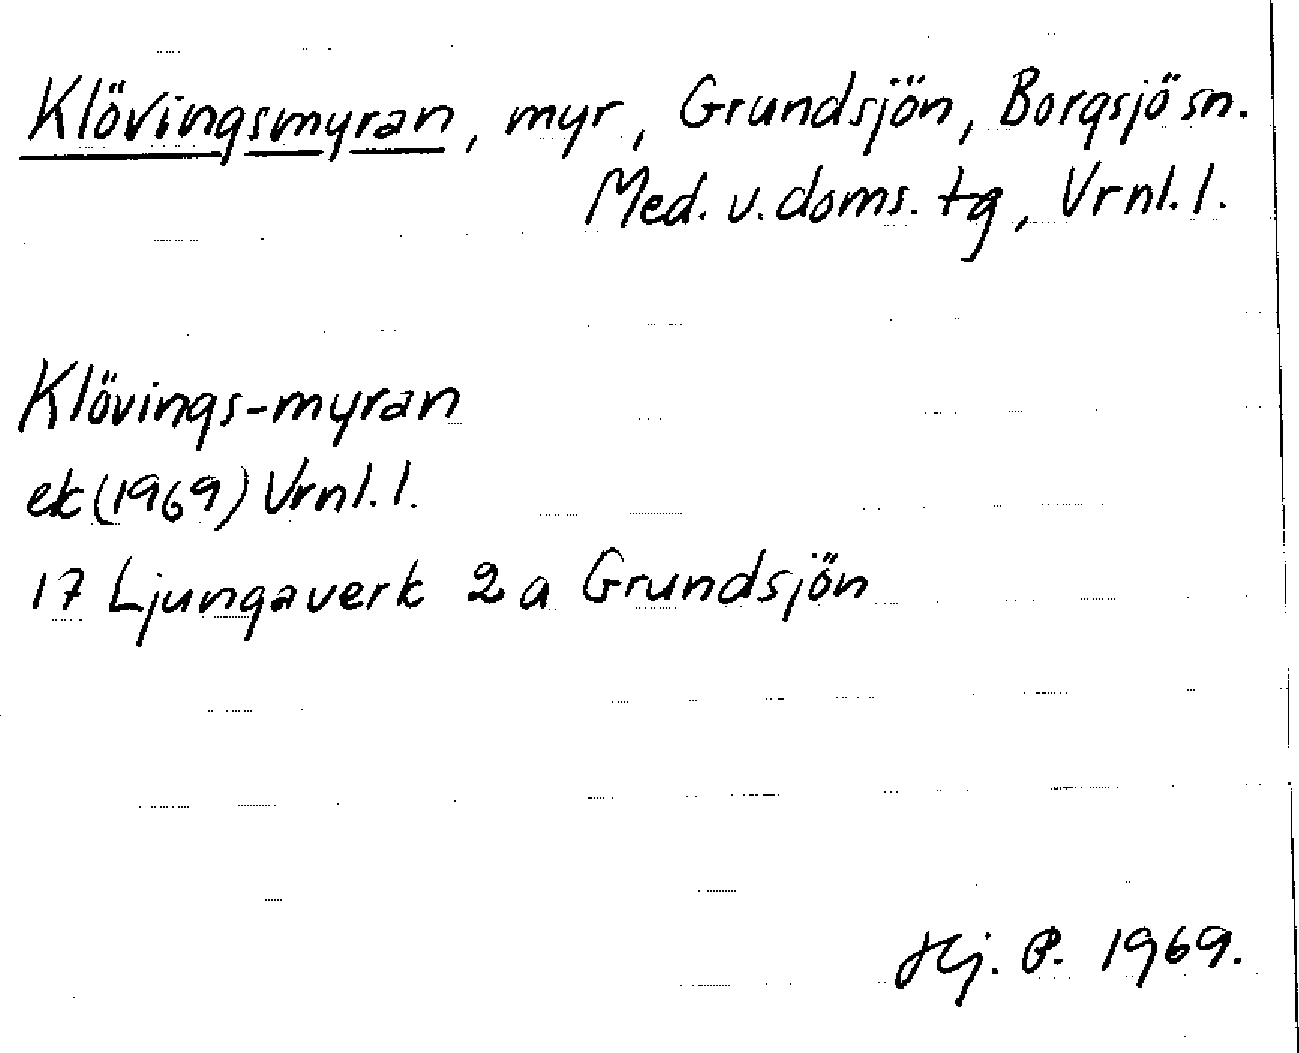 Klövingsmyran, myr, Grundsjön, Borgsjö sn.
Med. v. doms. tg, Vrnl. l.
Klövings-myran
ek (1969) Vrnl. l.
17 Ljungaverk 2 a Grundsjön
Hj. P. 1969.